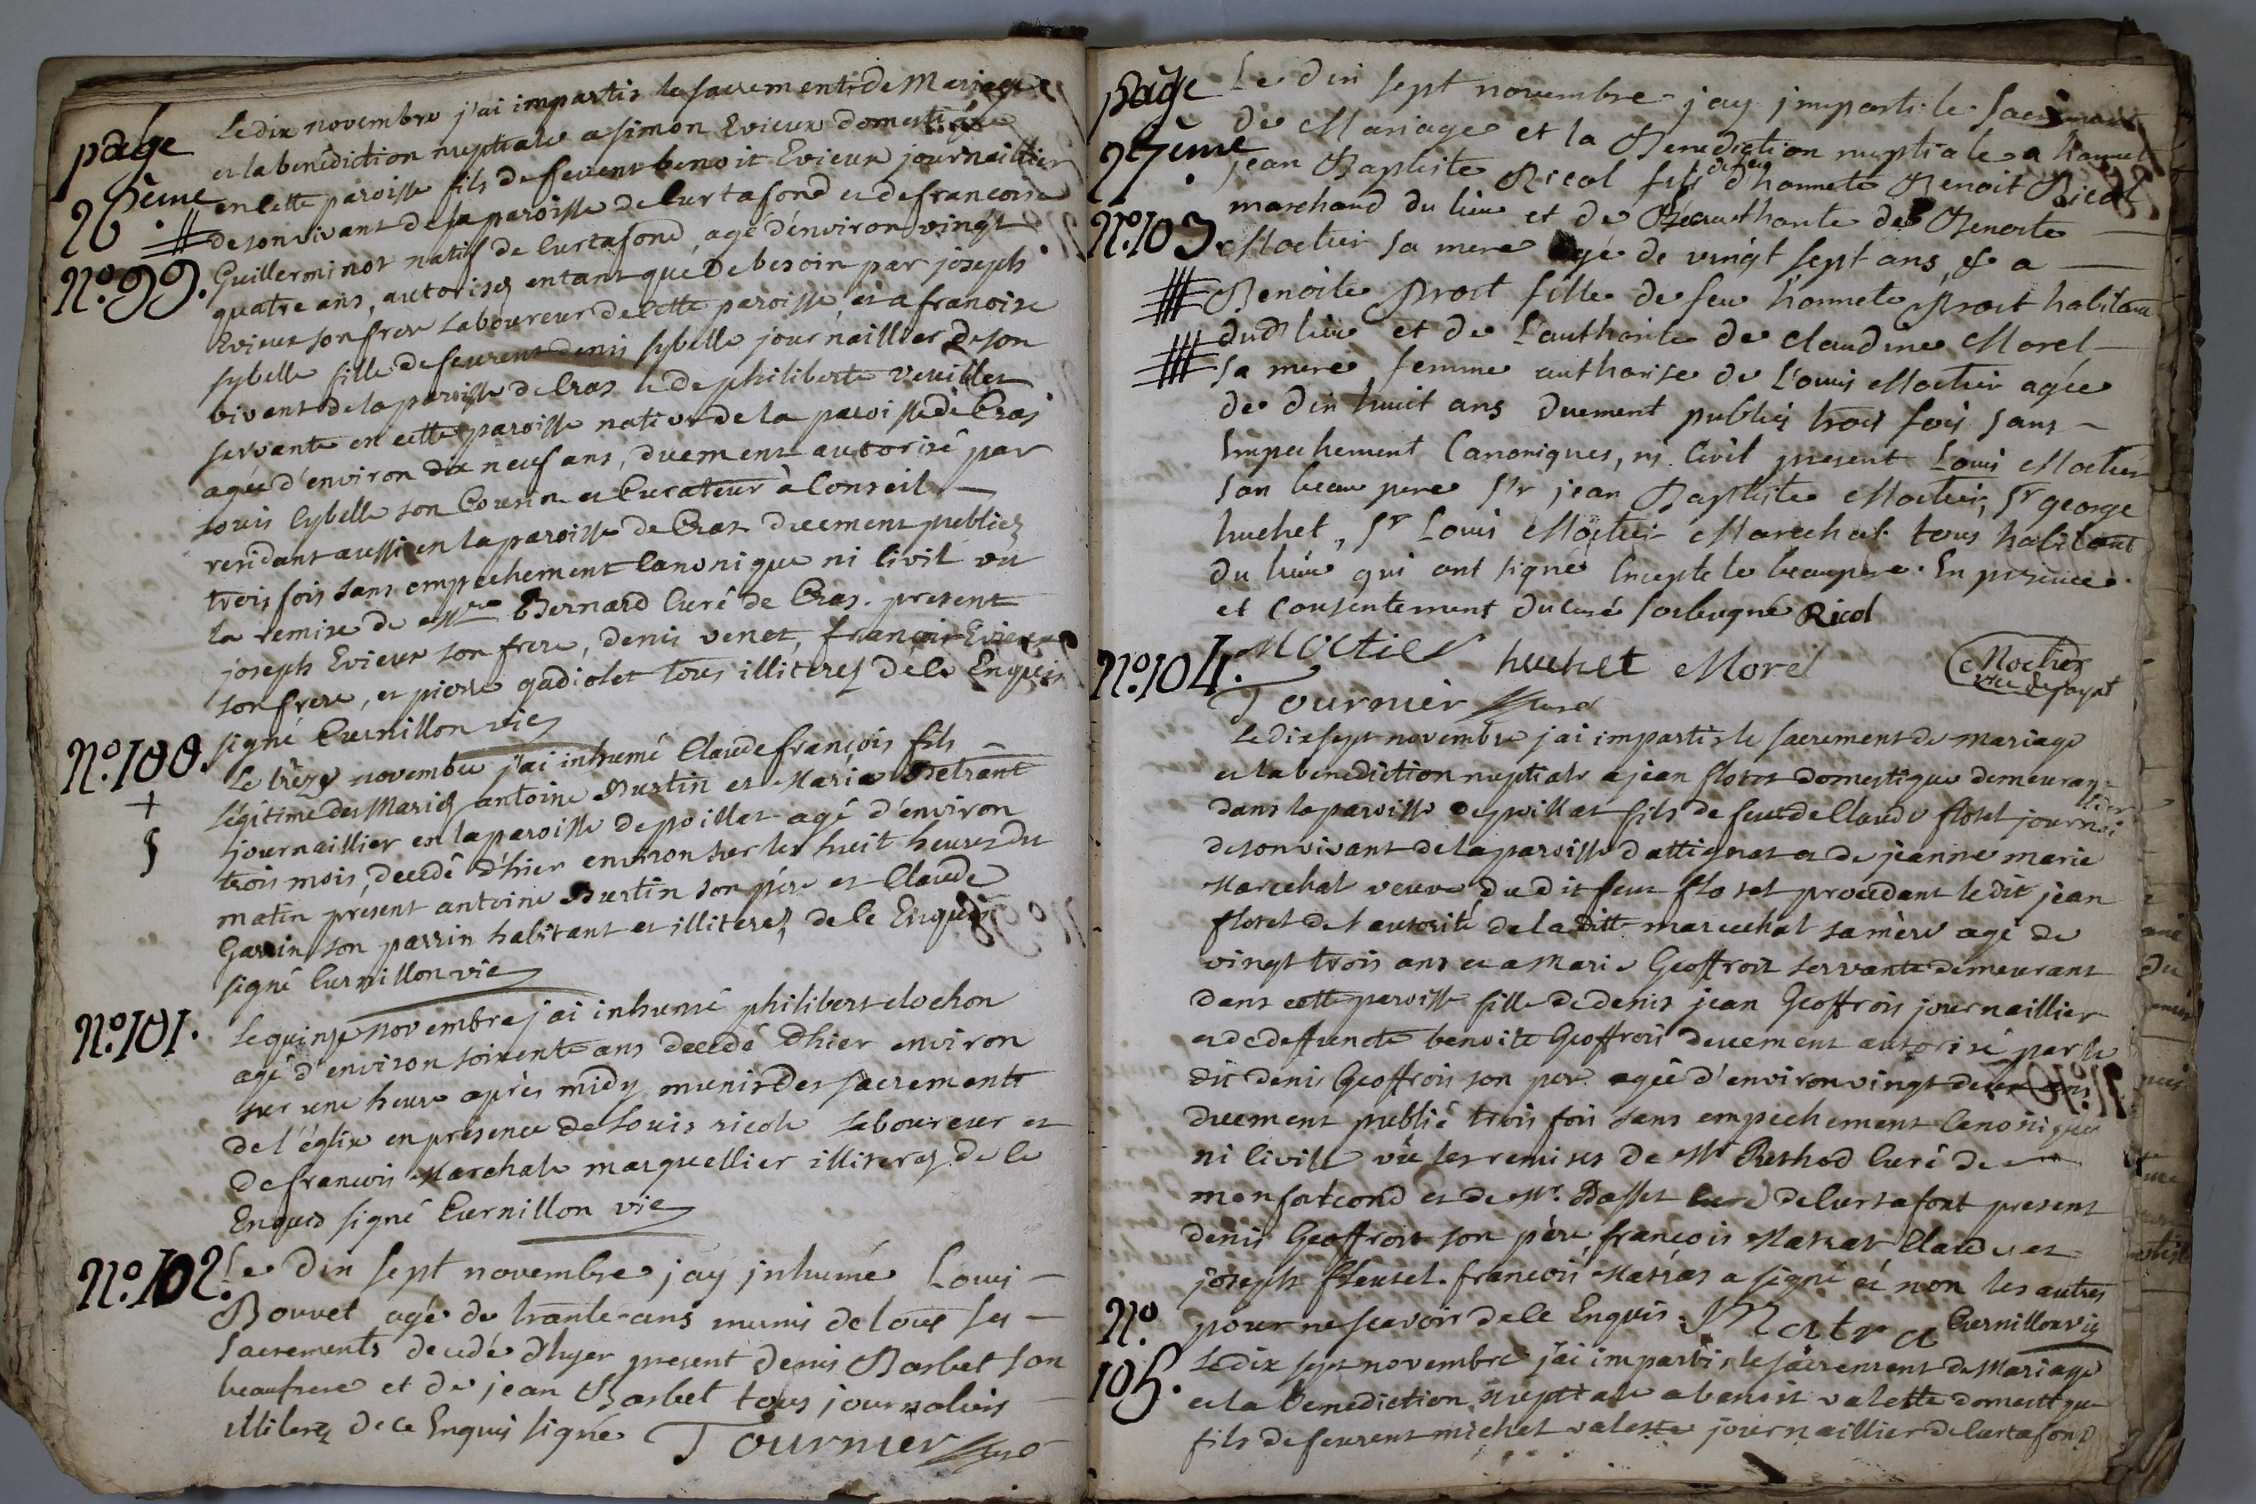 page
26ème
Le dix novembre j'ai impartis le sacrement de Mariage
et la benediction nuptiale a simon Evieux domestique
en cette paroisse fils de feurent benoit Evieux journaillier
de son vivant de la paroisse de Curtafond et de francoise
N.o 99.
Guillerminot natif de Curtafond, agé d'énviron vingt
quatre ans, autorisez entant qué de besoin par joseph
Evieux son frere laboureur de cette paroisse, et a franoise
sybelle fille de feurent denis sybelle jour naillier de son
vivant de la paroisse de Cras et de philiberte veuillet
servante en cette paroisse native de la paroisse de Cras
agée d'environ dix neuf ans, duement autorisé par
Louis Cybelle son Cousin et Curateur à Conseil
residant aussi en la paroisse de Cras duement publiez
trois fois sans empechement Canonique ni Civil vu
la remise de Bernard Curé de Cras. present
joseph Evieux son frere, denis venet, francois Evieux
son frere, et pierre gadiolet tous illiterez de ce Enquis
signé Curnillon vic
N.o 100.
Le trèze novembre j'ai inhumé Claude françois fils
légitime des Mariez antoine Burtin et Maria Betrant
journaillier en la paroisse de poillat agé d'énviron
trois mois, decedé d'hier environ sur les huit heures du
matin present antoine Burtin son père et Claude
Gavin son parrin habitant et illiterez, de ce Enquis
signé Curnillon vic
N.o 101.
Le quinze novembre j'ai inhumé philibert clochon
agé d'environ soixente ans decedé d'hier environ
sur une heure après midy munis des sacrements
de l'églize en presence de Louis ricole laboureur et
de francois Marchale marguellier illiterez de ce
Enquis signé Curnillon vic
N.o 102.
Le dix sept novembre j'ay jnhumé Louis
Bouvet agé de trante ans munis de tous ses
sacrements decedé d'hyer present denis Barbet son
beaufrere et de jean Barbet tous journaliers
illiterez de ce Enquis signé Tournier Curé
page
27ème
Le dix sept novembre j'ay jmparti le Sacrement
de Mariage et la Benediction nuptiale a honnete
jean Baptiste Ricol fils d'honnete Benoit Ricol
N.o 103.
marchand du lieu et de l'authorite de Benoite
Moctier sa mere agé de vingt sept ans, et a
Benoite Broit fille de feu honnete Broit habitant
dud lieu et de l'authorite de Claudine Morel
sa mere femme authorise de Louis Moctier agée
de dix huit ans duement publiés trois fois sans
Empechement Canoniques, ni Civil present Louis Moctier
son beau pere Sr jean Baptiste Moctier, Sr george
huchet, Sr Louis Moctier Marechal tous habitant
du lieu qui ont signé Excepte le beaupere. En presence
et Consentement du Curé soussigné Ricol
Moctier huchet Morel Moctier
N.o 104.
Tournier Curé
Le dix sept novembre j'ai impartis le sacrement de mariage
et la benediction nuptiale a jean floret domestique demeurant
dans la paroisse de poillat fils de feu de Claude floret journai
llier
de son vivant de la paroisse d'attignat et de jeanne marie
Marechal veuve du dit feu floret procedant le dit jean
floret de l'autorité de la ditte marechal sa mère agé de
vingt trois ans et a Marie Geoffroit servante demeurant
dans cette paroisse fille de denis jean Geoffroit journaillier
et de deffuncte benoite Geoffroi duement autorisé par le
dit denis Geoffrois son per agée d'environ vingt deux ans
duement publié trois fois sans empechement Canonique
ni Civile vue les remises de Mr Curé de
monfortcond et de Mr. Basset Curé de Curtafont present
denis Geoffroit son père, francois Matrat Claude et
joseph fleuret. francois Matras a signé et non les autres
pour ne scavoir de ce Enquis. f Matra Curnillon vic
N.o
105.
Le dix sept novembre j'ai impartis le sacrement de Mariage
et la Benediction nuptiale a benoit valette domestique
fils de feurent michel valette journaillier de Curtafond